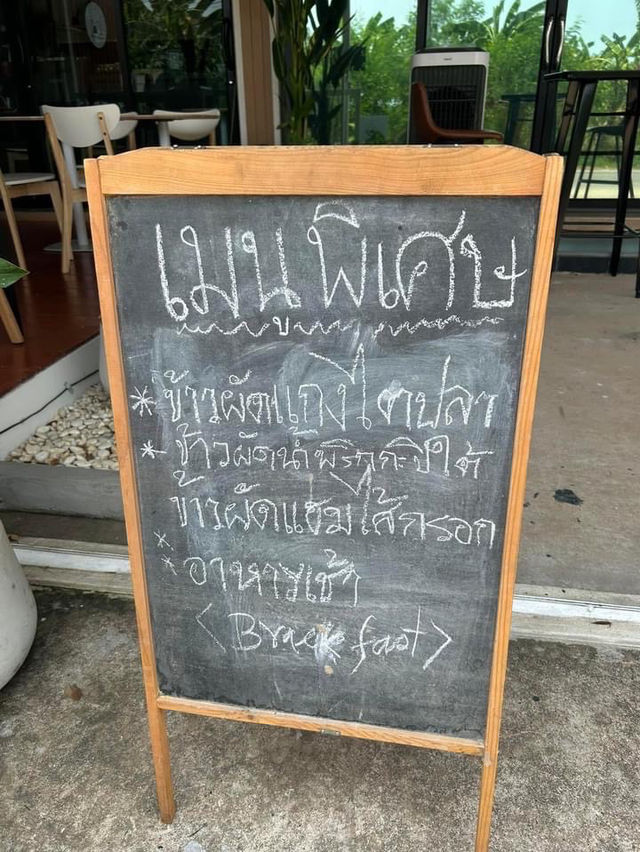 เมนูพิเศษ
* ข้าวผัดแกงไตปลา
* ข้าวผัดน้ำพริกกะปิใต้
ข้าวผัดแฮมไส้กรอก
* * อาหารเช้า
<Breakfast>